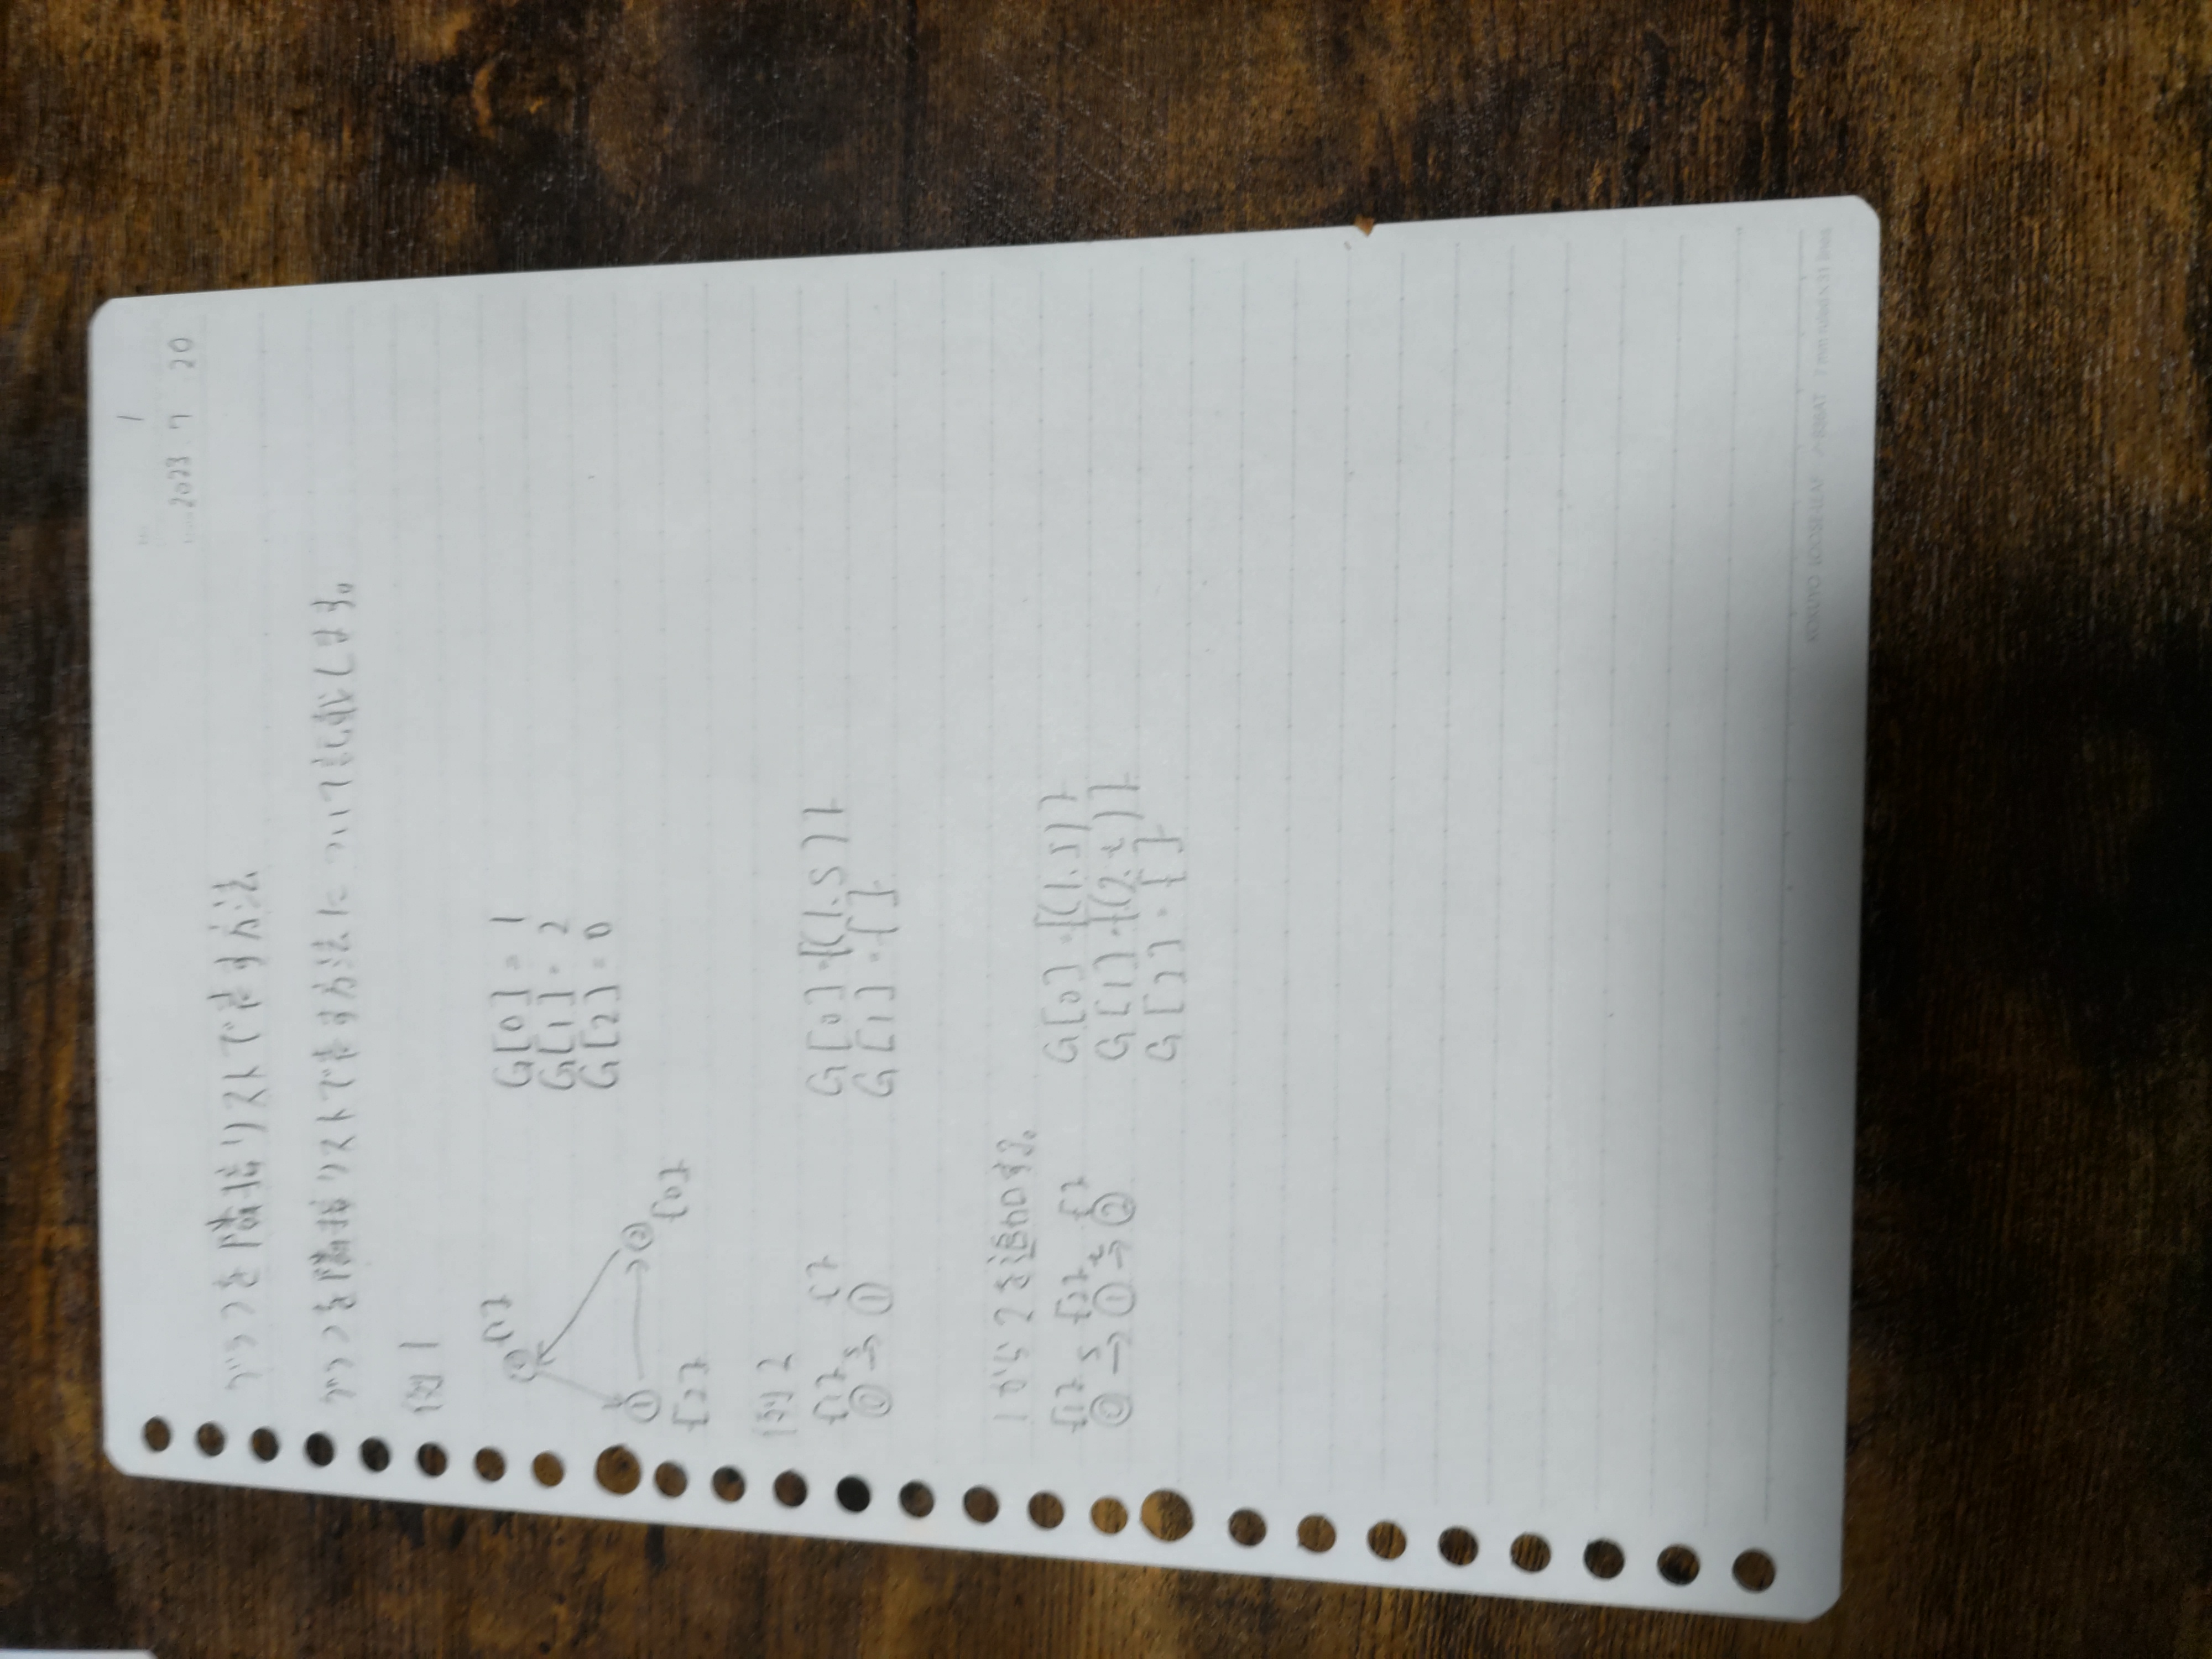 1
2023 7 20
グラフを隣接リストで表す方法
グラフを隣接リストで表す方法について記載します。
例1
⓪{1}
G[0] = 1
G[1] = 2
G[2] = 0
① ②
{0}
{2}
例2
{1} { }
G[0]={(1.s)}
s
⓪→①
G[1]={ }
1から2を追加する。
{1} {2} { }
G[0]={(1.s)}
s t
⓪→①→②
G[1]={(2.t)}
G[2]={ }
KOKUYO LOOSE-LEAF ノ-836AT 7 mm ruled×31 lines